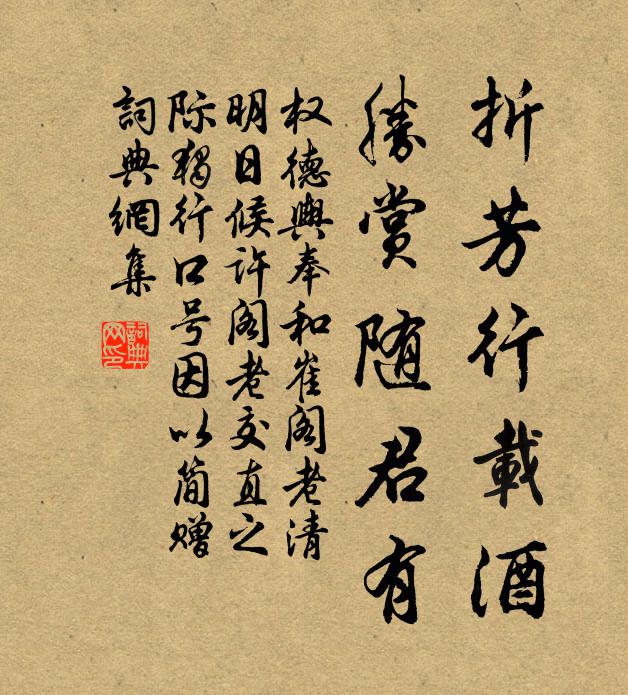 折芳行載酒
勝賞随君有
权德輿奉和崔阁老清
明日候许阁老交直之
际独行口号因以简赠
詞典網集
詞典网印